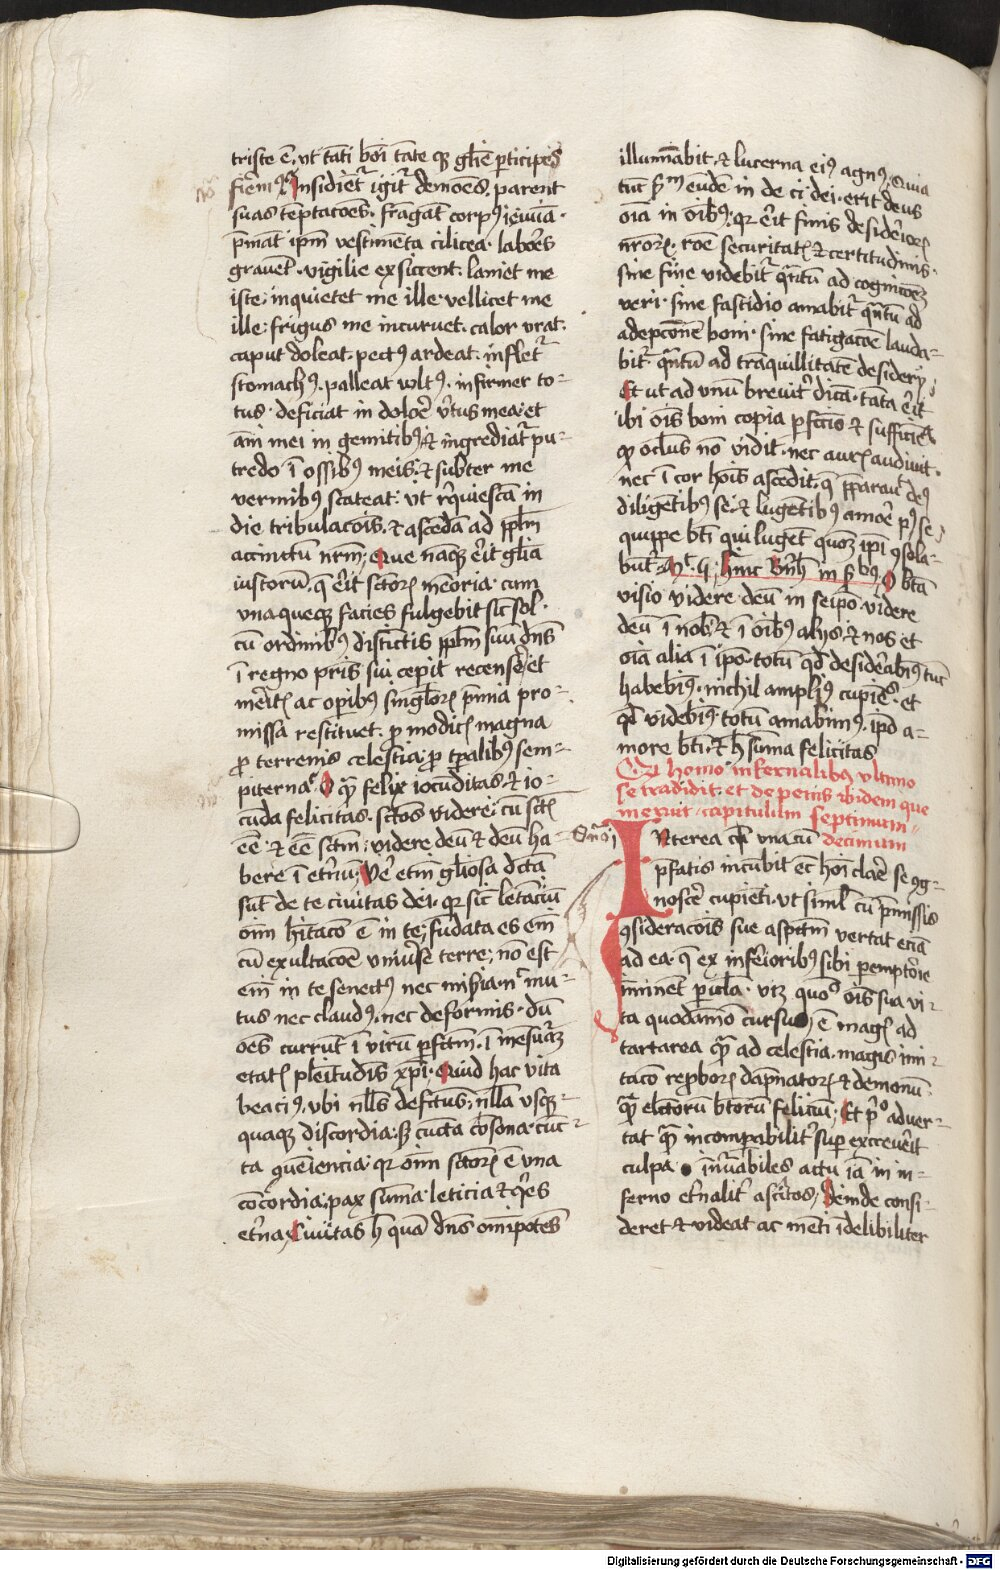 triste ē. vt tāti boī tāte qꝫ gl̄ie ꝑticipes
fiem⁹ Insidiēt᷑ igit᷑ demōēs. parent
suas tēptacōēs. frāgāt corp⁹ ieiuīa.
p̄māt ip̄m vestimēta cilicea. labōēs
grauēt. vigilie exsiccent. laniet me
iste. inquietet me ille. vellicet me
ille. frigus me incuruet. calor vrat.
caput doleat. pect⁹ ardeat. inflet᷑
stomach⁹. palleat vlt⁹. infirmer to-
tus. deficiat in dolōē v̓tus mea. et
ām̄ mei in gemitib⁹. ⁊ ingrediat᷑ pu-
tredo ī ossib⁹ meis. ⁊ subter me
vermib⁹ scateat. vt r̓quiescā in
die tribulacōis. ⁊ ascēdā ad pp̄lm
accinctū nr̄m. Que nāqꝫ ēit gl̄ia
iustorū. q̄ ēit sctōꝝ meoria. cum
vnaqueqꝫ facies fulgebit sic̄ sol.
cū ordinib⁹ distīctis pp̄lm suū dn̄s
ī regno pr̄is sui cepīt recensēe. et
mēitꝭ ac oꝑib⁹ singl̄oꝝ p̄mia pro-
missa restituet. ꝓ modicꝭ magna
ꝓ terrenis celestia. ꝓ tꝑalib⁹ sem-
piterna. O q̄ felix iocūditas. ⁊ io-
cūda felicitas. sctōs videre. cū sctꝭ
eē. ⁊ eē sctm̄. videre deū ⁊ deū ha-
bere ī etn̄ū. Vē etīm gl̄iosa dctā
sūt de te ciuitas dei. qr sic̄ letanciū
oīm hītacō ē in te. fūdata es em̄
cū exultacōe vniūse terre. nō est
em̄ in te senect⁹ nec mis̓ia. n̄c mu-
tus nec claud⁹. nec deformis. dū
oēs currūt ī virū ꝑfctm̄. ī mēsurā
etatꝭ plēitudīs xp̄i. Quid hac vita
beaci⁹. vbi nll̄s defctūs. nll̄a vsqꝫ-
quaqꝫ discordia. sꝫ cūcta cōsona. cūc-
ta ꝗueīencia. qr oīm sctōꝝ ē vna
cōcordia. pax sum̄a. leticia ⁊ q̓es
et̄na. Ciuitas h̄ quā dn̄s om̄ipotēs
illumīabit. ⁊ lucerna ei⁹ agn⁹. Quia
tūc ẜm eūdē in de ci. dei. erit deus
oīa in oīb⁹. qr ēit finis desidēioꝝ
nr̄oꝝ. rōe securitatꝭ ⁊ certitudinis.
sine fine videbit᷑ q̄ntū ad cognicōēꝫ
veri. sine fastidio amabit᷑ q̄ntū ad
adepcōnē boni. sine fatigacōe lauda-
bit᷑. q̄ntū ad trāquillitatē desiderij
Et ut ad vnū breuit᷑ dicā. tāta ēit
ibi oīs boni copia ꝑfctīo ⁊ sufficīē.
qꝫ oclūs nō vidit. nec aurꝭ audiuit.
nec ī cor hoīs ascēdit. q̄ pp̄arau᷑ de⁹
diligētib⁹ se. ⁊ lugētib⁹ amoē p⁹ se
quippe bt̄i qui lugēt quoꝫ ip̄i ꝯsola-
būt᷑. Mt. 5. Hinc Bn̄h in ẜbꝰ. O btā
visio videre deū in seip̄o. videre
deū ī nob̄. ⁊ ī oīb⁹ alijs. ⁊ nos et
oīa alia ī ip̄o. totū qd̓ desidēabi⁹ tūc
habebi⁹. nichil ampl̄i⁹ cupiē⁹. et
qd̓ videbi⁹. totū amabim⁹. ip̄o a-
more bt̄i. ⁊ h̄ sum̄a felicitas
Qd homo infernalibꝰ vltimo
se tradidit. et de penis ibidem que
meruit. capitulum septimum
decimum
Nterea cū vna cū
p̄fatis incūbit ec̄ hoī claē se ꝯg-
noscē cupiēti. vt siml̄ cū p̄missis
ꝯsideracōis sue aspctm̄ vertat eciā
ad ea. q̄ ex infēiorib⁹ sibi ꝑemptoīe
īminēt ꝑicl̄a. vtꝫ quō oīs sua vi-
ta quodāmō cursus ē magꝭ ad
tartarea q̄ ad celestia. magis imi-
tacō reꝓboꝝ dāpnatoꝝ ⁊ demonū.
q̄ elctōrū btōrū feliciū. Et p̄o aduer-
tat q̄ incomꝑabilit᷑ suꝑexcreuēit
culpa īnūabiles actu iā in in-
ferno et̄nalit᷑ asc̓tos. Deinde consi-
deret ⁊ videat ac mēti īdelibiliter